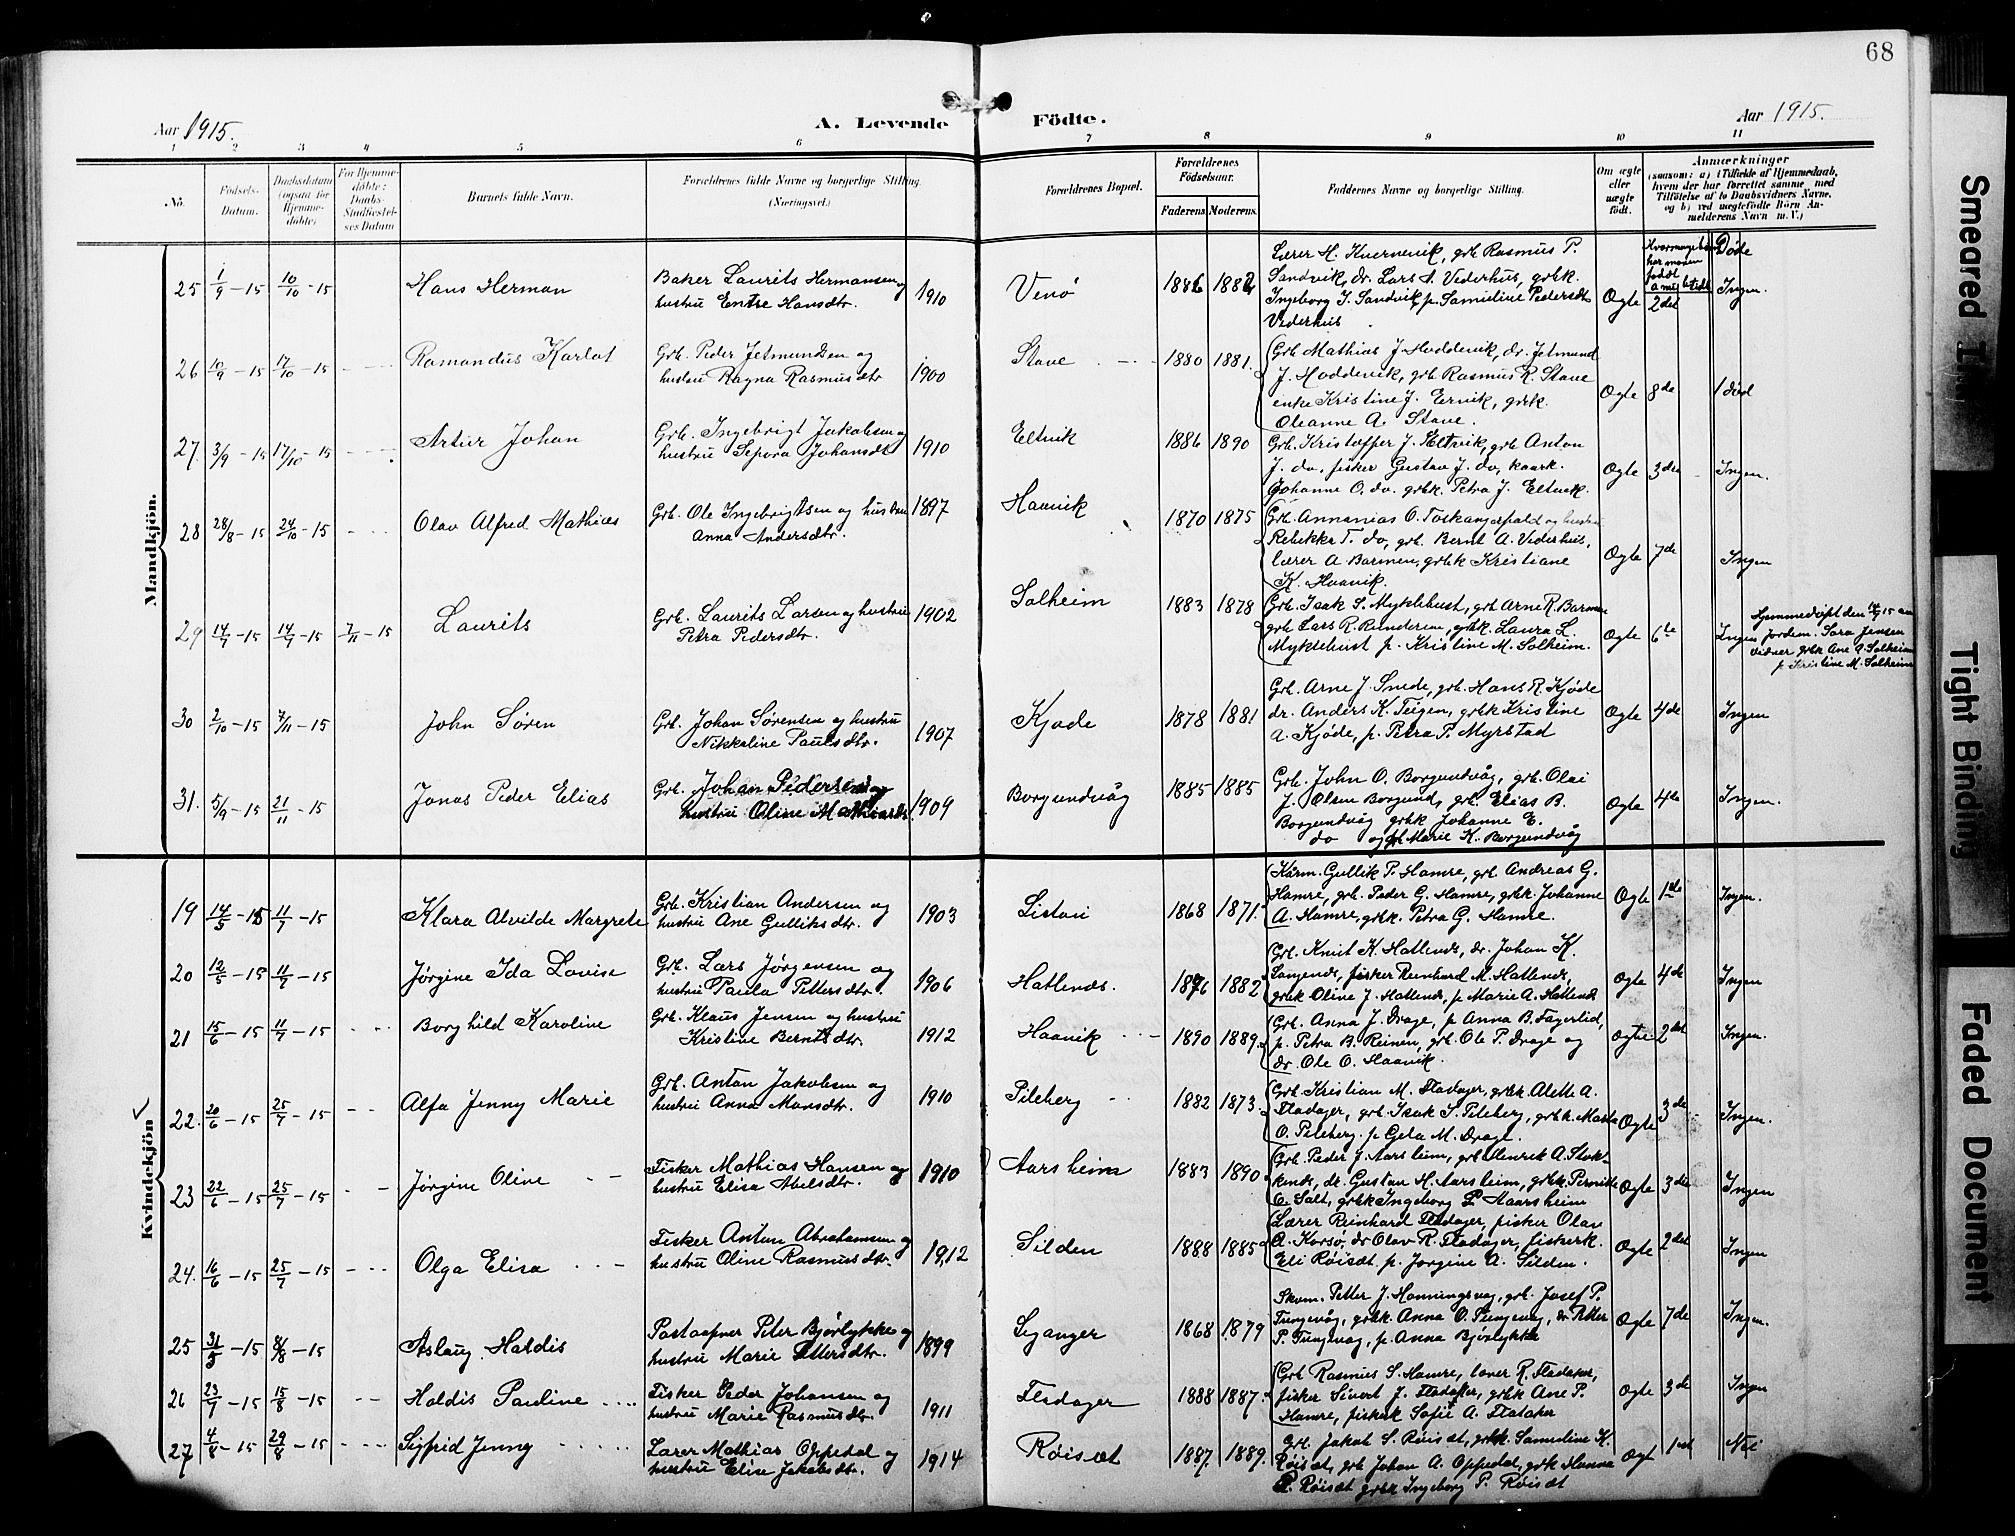 68
Aar 1915.
A. Levende Födte.
Aar 1915.
1 2 3 4 5 6 7 8 9 10 11
No.
Fødsels-
Datum.
Daabsdatum
(ogsaa for
Hjemme-
døbte)
For Hjemme-
døbte:
Daabs-
Stadfæstel-
ses Datum
Barnets fulde Navn.
Forældrenes fulde Navne og borgerlige Stilling.
(Næringsvei.)
Forældrenes Bopæl.
Forældrenes
Fødselsaar.
Faderens. Moderens.
Faddernes Navne og borgerlige Stilling.
Om ægte
eller
uægte
født.
Anmærkninger
(saasom: a) i Tilfælde af Hjemmedaab,
hvem der har forrettet samme med
Tilføielse af to Daabsvidners Navne,
og b) ved uægtefødte Börn An-
melderens Navn m. V.)
Mandkjön.
har moren
født
Døde
25 1/9 - 15 10/10 - 15 Hans Herman
Baker Laurits Hermansen og
hustru Entre Hansdtr. 1910
Venø 1886 1882
Lærer H. Kvernevik, grb Rasmus P.
Sandvik, dr. Lars A. Vederhus, grbk.
Ingeborg J. Sandvik, p. Sameline Pedersdtr
Vederhus
Ogte 2det Ingen.
26 10/9 - 15 17/10 - 15 Ramandus Karlot
Grb. Peder Jetmundsen og
hustru Ragna Rasmusdtr 1900
Stave 1880 1881.
Grb Mathias J. Hoddevik, dr. Jetmund
J. Hoddevik, grb Rasmus R. Stave
enke Kristine J. Ervik, grbk.
Oleanne A. Stave.
Ogte 8de 1 død
27. 3/9 - 15 17/10 - 15 Artur Johan
Grb. Ingebrigt Jakobsen og
hustru Sepora Johansdt 1910
Eltvik 1886 1890
Grb. Kristoffer J. Eltvik, grb Anton
J. do, fisker Gustav J. do, kaark.
Johanne O. do. grbk. Petra J. Eltvik.
Ogte 3die Ingen.
28 28/8 - 15 24/10 - 15 Olav Alfred Mathias
Grb. Ole Ingebrigtsen og hustru
Anna Andersdtr. 1897
Haavik 1870 1875
Grb. Annanias O. Toskangerpold og hustru
Rebekke T. do, grb. Bernt A. Vederhus,
lærer A Barmen, grbk Kristiane
K. Haavik.
Ogte 7de Ingen
29 14/7 - 15 14/7 - 15 7/11 - 15 Laurits
Grb. Laurits Larsen og hustru
Petra Pedersdtr. 1902
Solheim 1883 1878
Grb. Isak S. Myklebust, grb Arne R. Barmen
grb Lars R. Runderem, grbk. Laura L.
Myklebust p. Kristine M. Solheim.
Ogte 6te Ingen
Hjemmedøpt den 14/7 15 av
jordem. Sara Jensen
vidner grbk Ane A. Solheim
p. Kristine M. Solheim
30 2/10 - 15 7/11 - 15 John Søren
Grb. Johan Sørensen og hustru
Nikkoline Paulsdtr. 1907
Kjøde 1878 1881
Grb. Arne J. Smede, grb. Hans R. Kjøde
dr. Anders K. Teigen, grbk Kristine
A. Kjøde, p. Petra P. Myrstad
Ogte 4de Ingen
31. 5/9 - 15 21/11 - 15 Jonas Peder Elias
Grb. Johan Pedersen og
hustru Oline Mathiasdt. 1909
Borgundvåg 1885 1885
Grb. John O. Borgundvåg, grb. Olai
J. Olsen Borgund, grb. Elias B.
Borgundvåg grbk Johanne E.
do og p. Marie K. Borgundvåg
Ogte 4de Ingen.
Kvindekjön ✓
19 14/5 - 15 11/7 - 15 Klara Alvilde Margrete
Grb. Kristian Andersen og
hustru Ane Gulliksdtr. 1903
Listøi 1868 1871.
Kårm. Gullik P. Hamre, grb Andreas G.
Hamre, grb. Peder G. Hamre, grbk Johanne
A. Hamre, grbk. Petra G. Hamre.
Ogte 1ste Ingen.
20 12/5 - 15 11/7 - 15 Jørgine Ida Lovise
Grb. Lars Jørgensen og
hustru Paula Pettersdtr. 1906
Hatlenes. 1876 1882
Grb. Knut K. Hatlenes, dr. Johan K.
Langenes, fisker Reinhard M. Hatlenes,
grbk Oline J. Hatlenes, p Marie A. Hatlenes
Ogte 4de Ingen
21 15/6 - 15 11/7 - 15 Borghild Karoline
Grb. Klaus Jensen og hustru
Kristine Berntsdtr. 1912
Haavik 1890 1889.
Grb. Anna J. Drage, p Anna B. Fagerlid,
p. Petra B. Reinen, grb. Ole P. Drage og
dr. Ole O. Haavik.
Ogte 2det Ingen.
22. 20/6 - 15 25/7 - 15 Alfa Jenny Marie
Grb. Anton Jakobsen og
hustru Anna Monsdtr. 1910
Pileberg 1882 1873.
Grb. Kristian M. Fladager, grbk Alette A.
Fladager, grb. Isak S. Pileberg, grbk. Marta
O. Pileberg. p. Gela M. Drage.
Ogte 3die Ingen.
23 22/6 - 15 25/7 - 15 Jørgine Oline
Fisker Mathias Hansen og
hustru Elisa Abelsdtr. 1910
Aarsheim 1883 1890
Grb. Peder J. Aarsheim, grb Henrik A. Stok-
kenes, dr. Gustav H. Aarsheim, grbk. Pernille
E. Salt, grbk Ingeborg L. Aarsheim
Ogte 3die Ingen
24. 16/6 - 15 25/7 - 15 Olga Elisa
Fisker Anton Abrahamsen og
hustru Oline Rasmusdtr. 1912
Silden 1888 1885
Lærer Reinhard Fladager, fisker Olav
A. Korsø, dr Olav R. Fladager, fiskerk.
Eli Røisæt p. Jørgine A. Silden.
Ogte 2det Ingen
25 31/5 - 15 8/8 - 15 Aslaug Haldis
Postaapner Peter Bjørlykke og
hustru Marie Pettersdtr. 1899
Leganger 1868 1879
Skom. Petter J. Honningsvag, grb. Josef P.
Tungevåg, grbk. Anna O. Tungevag, dr. Petter
P. Tungevag, p. Anna Bjørlykke
Ogte 7de Ingen.
26 23/7 - 15 15/8 - 15 Haldis Pauline
Fisker Peder Johansen og
hustru Marie Rasmusdtr. 1911
Fladager 1888 1887.
Grb Rasmus S. Hamre, lærer R. Fladaker,
fisker Sivert J. Fladaker, grbk Ane P.
Hamre, fiskerk Sofie A. Fladaker
Ogte 3de Ingen
27 4/8 - 15 29/8 - 15 Sigfrid Jenny
Lærer Mathias Oppedal og
hustru Elise Jakobsdtr. 1914
Røisæt 1887. 1889.
Grb. Jakob S. Røisæt, grbk. Sameline K.
Røisæt, grb Johan A. Oppedal, grbk Hanna
P. Røisæt grbk Ingeborg P. Røisæt
Ogt 1ste Nei
Smeared
Tight Binding
Faded Document